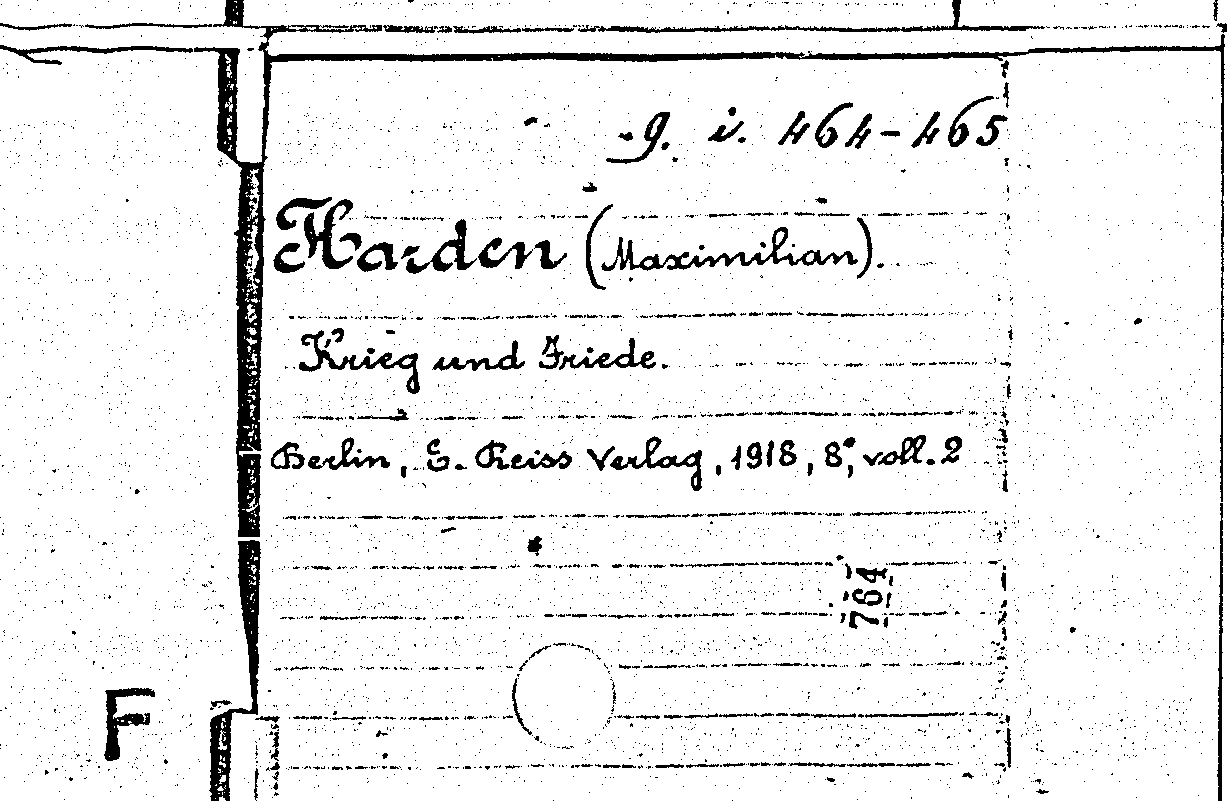 g. i. 464-465
Harden (Maximilian).
Krieg und Friede.
Berlin, E. Reiss Verlag, 1918, 8°, voll. 2
764
F